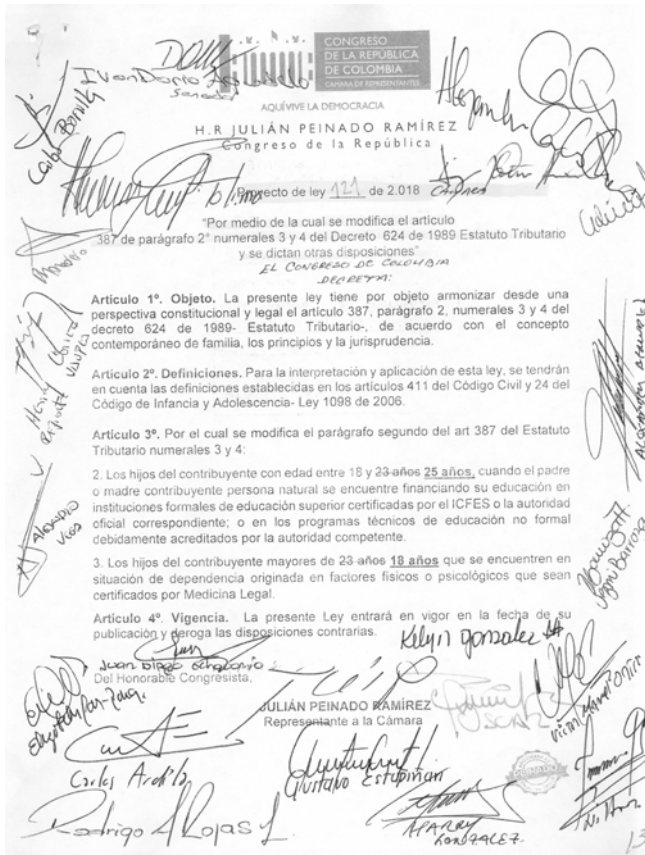 CONGRESO
DE LA REPÚBLICA
DE COLOMBIA
CÁMARA DE REPRESENTANTES
AQUÍVIVE LA DEMOCRACIA
H.R JULIÁN PEINADO RAMÍREZ
Congreso de la República
Proyecto de ley 121 de 2.018 Cámara
"Por medio de la cual se modifica el artículo
387 de parágrafo 2° numerales 3 y 4 del Decreto 624 de 1989 Estatuto Tributario
y se dictan otras disposiciones"
EL CONGRESO DE COLOMBIA
DECRETA:
Artículo 1º. Objeto. La presente ley tiene por objeto armonizar desde una
perspectiva constitucional y legal el artículo 387, parágrafo 2, numerales 3 y 4 del
decreto 624 de 1989- Estatuto Tributario-, de acuerdo con el concepto
contemporáneo de familia, los principios y la jurisprudencia.
Artículo 2º. Definiciones. Para la interpretación y aplicación de esta ley, se tendrán
en cuenta las definiciones establecidas en los artículos 411 del Código Civil y 24 del
Código de Infancia y Adolescencia- Ley 1098 de 2006.
Artículo 3º. Por el cual se modifica el parágrafo segundo del art 387 del Estatuto
Tributario numerales 3 y 4:
2. Los hijos del contribuyente con edad entre 18 y 23 años 25 años, cuando el padre
o madre contribuyente persona natural se encuentre financiando su educación en
instituciones formales de educación superior certificadas por el ICFES o la autoridad
oficial correspondiente; o en los programas técnicos de educación no formal
debidamente acreditados por la autoridad competente.
3. Los hijos del contribuyente mayores de 23 años 18 años que se encuentren en
situación de dependencia originada en factores físicos o psicológicos que sean
certificados por Medicina Legal.
Artículo 4º. Vigencia. La presente Ley entrará en vigor en la fecha de su
publicación y deroga las disposiciones contrarias.
Kelyn Gonzalez
Juan Diego Echavarría
Del Honorable Congresista,
JULIÁN PEINADO RAMÍREZ
Representante a la Cámara
Carlos Ardila
Gustavo Estupiñan
Rodrigo A Rojas L.
APARRY GONZALEZ